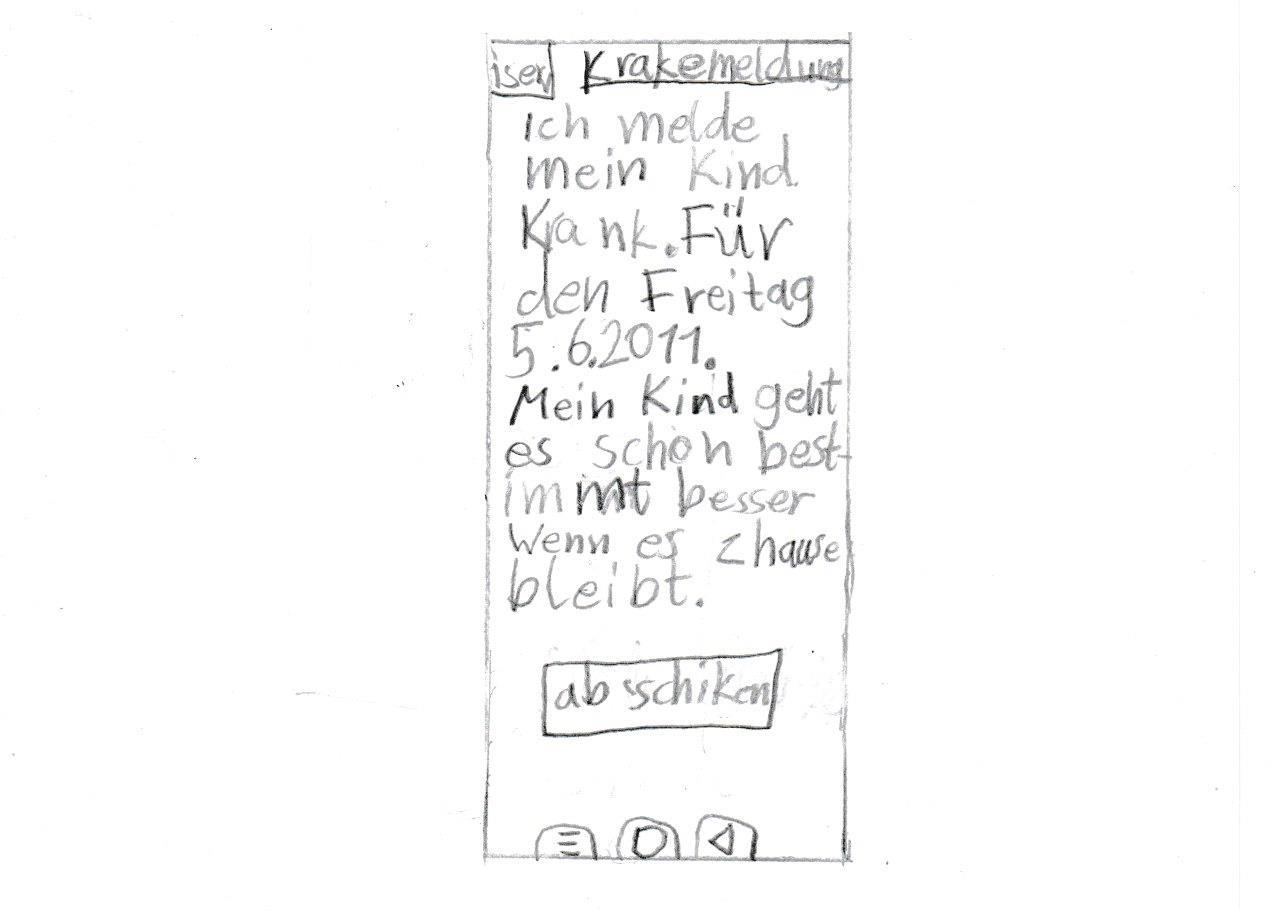 iserv Krakemeldung
ich melde
mein Kind
Krank. Für
den Freitag
5.6.2011.
Mein Kind geht
es schon best-
immt besser
Wenn es zhause
bleibt.
abschiken